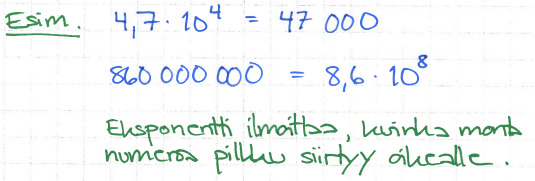 Esim. 4,7 · 10⁴ = 47 000
860 000 000 = 8,6 · 10⁸
Eksponentti ilmoittaa, kuinka monta
numeroa pilkku siirtyy oikealle.